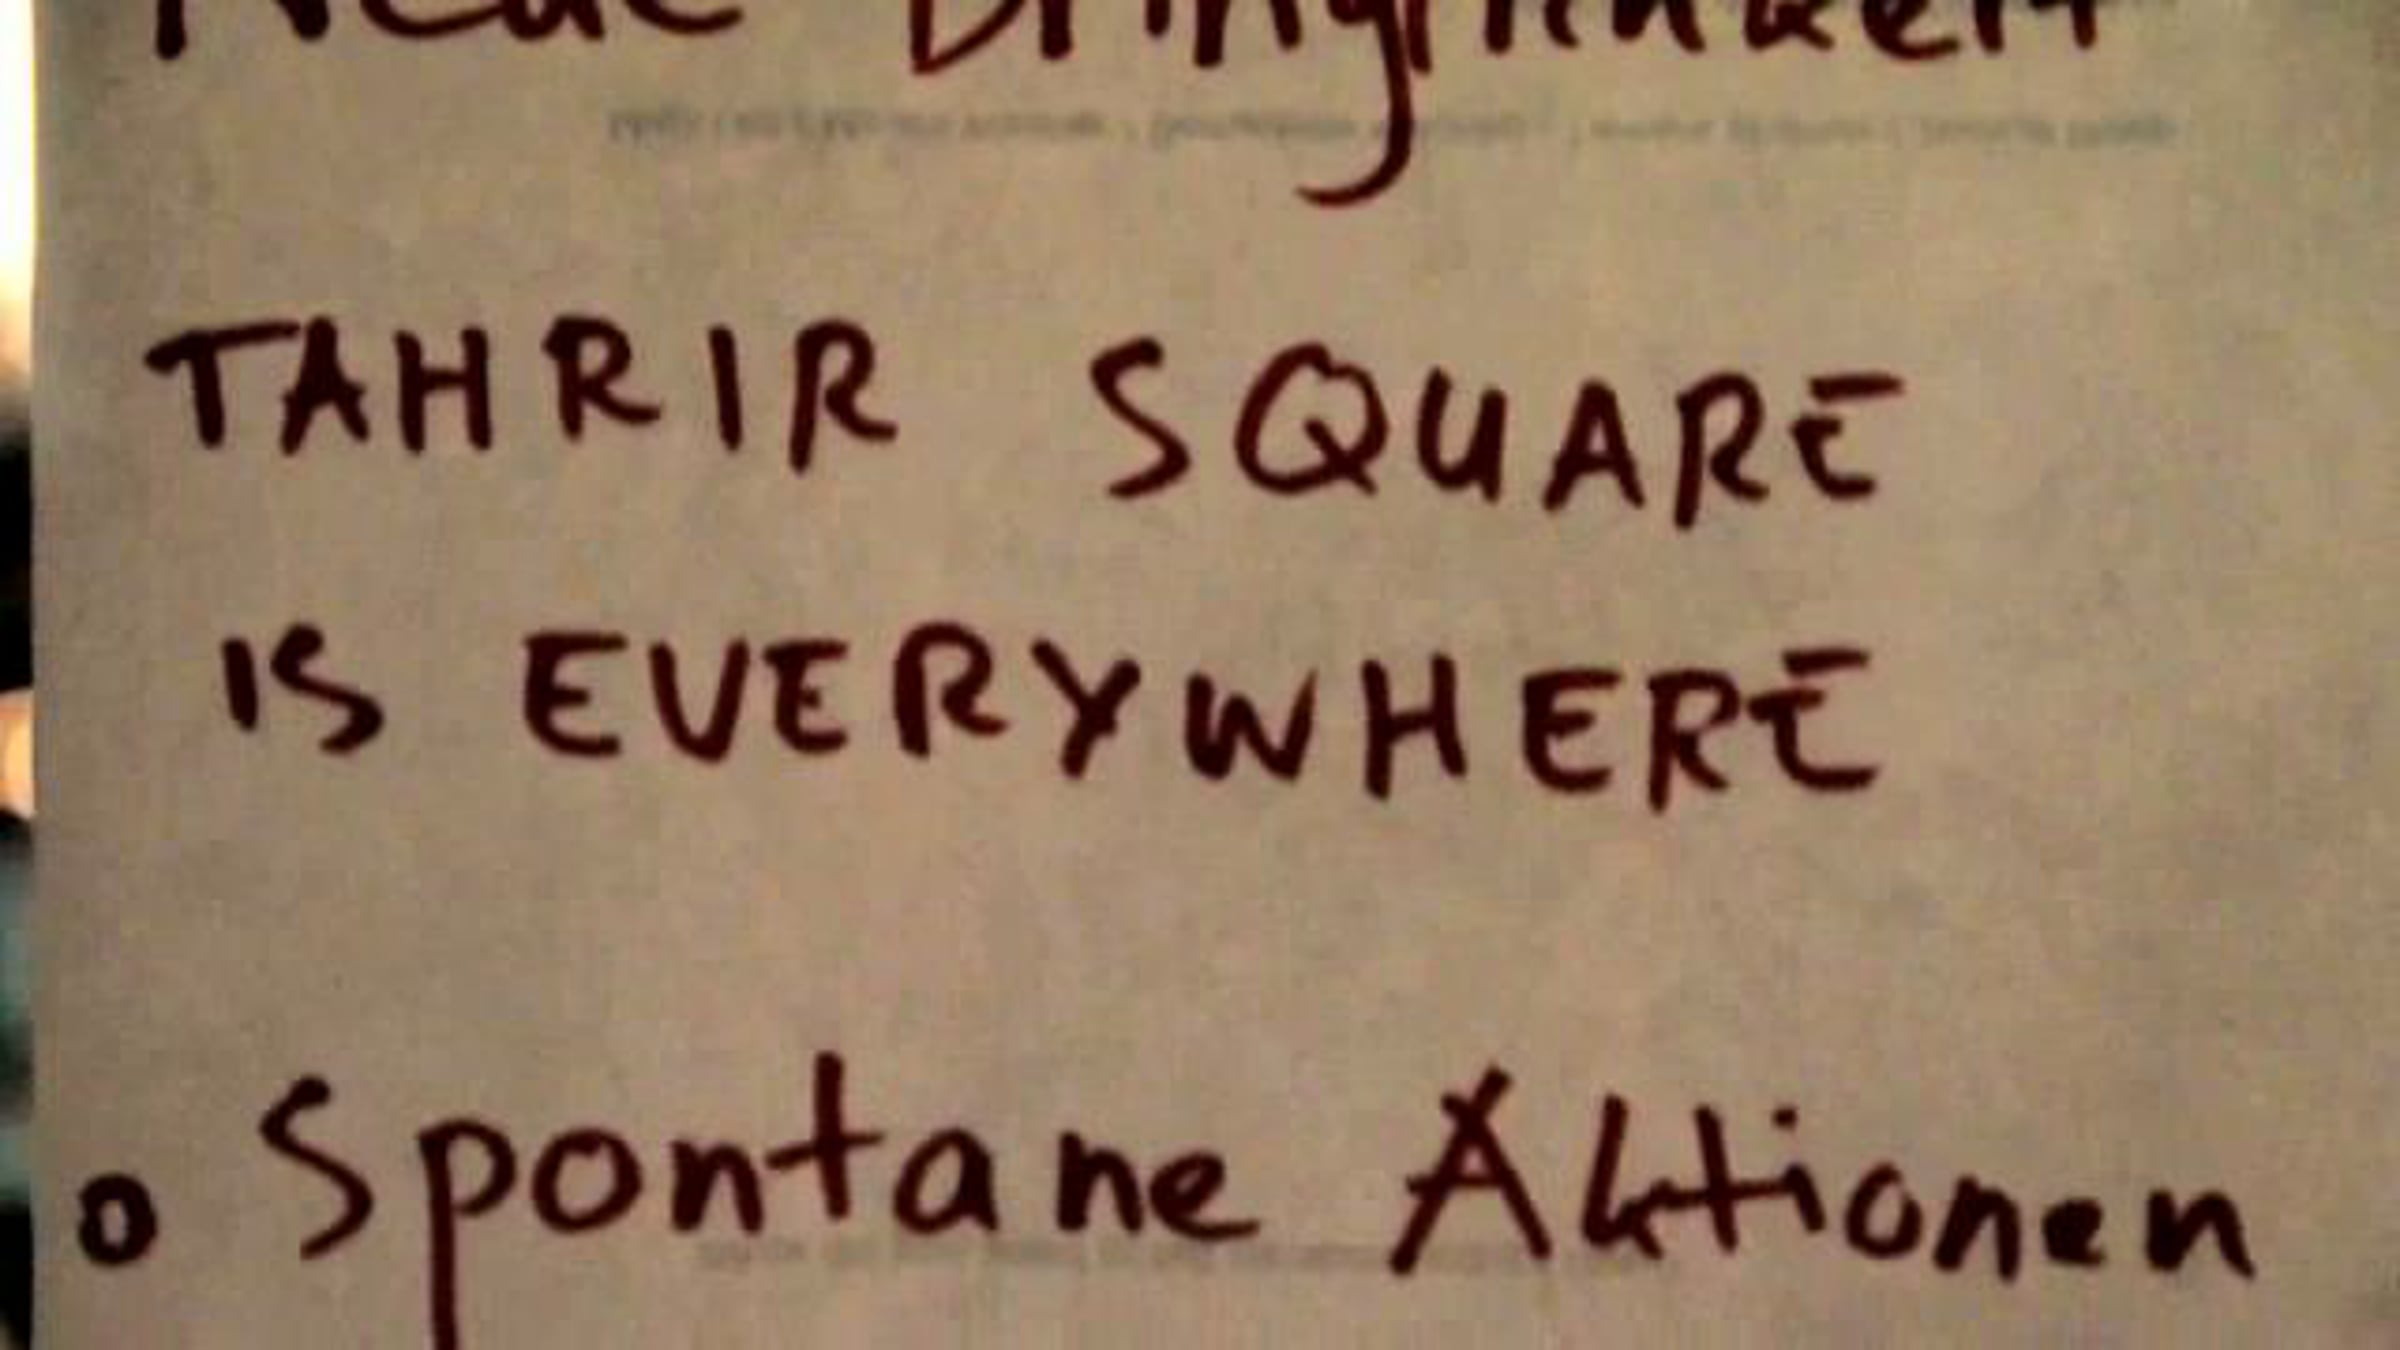 Neue Dringlichkeit
TAHRIR SQUARE
IS EVERYWHERE
o Spontane Aktionen